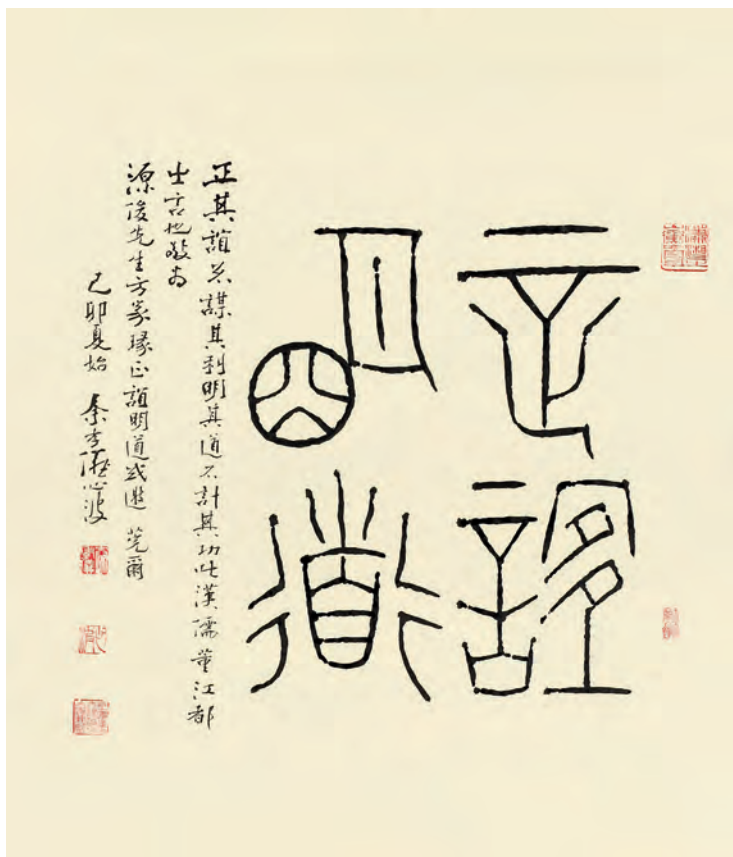 正誼
明道
正其誼不謀其利明其道不計其功此漢儒董江都
之言也敬為
源俊先生方家瑑正誼明道或邀 莞爾
己卯夏始 心波